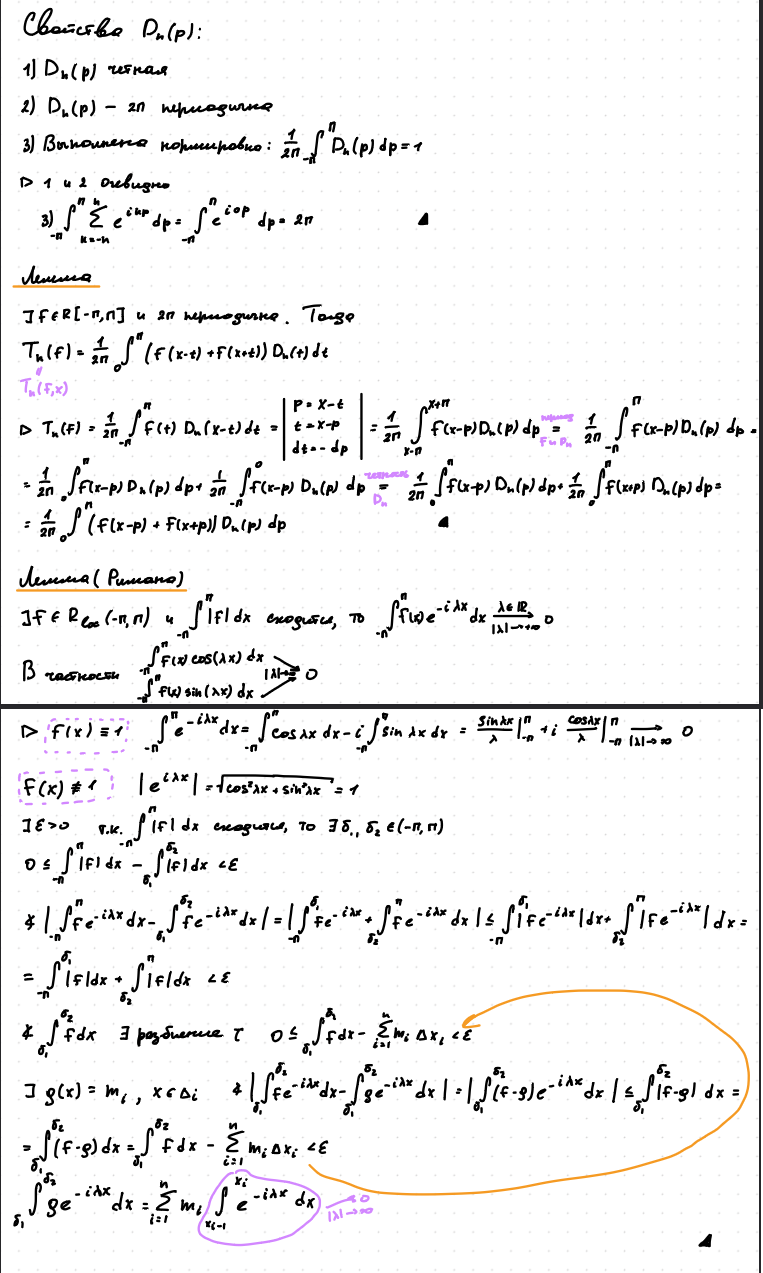 Свойства Dₙ(p):
1) Dₙ(p) чётная
2) Dₙ(p) – 2π периодична
3) Выполнена нормировка: 1/2π ∫_{-π}^{π} Dₙ(p) dp = 1
▷ 1 и 2 очевидно
3) ∫_{-π}^{π} ∑_{k=-n}^{n} e^{ikp} dp = ∫_{-π}^{π} e^{i0p} dp = 2π ◢
Лемма
∃ f ∈ R[-π,π] и 2π периодична. Тогда
Tₙ(f) = 1/2π ∫_0^π (f(x-t) + f(x+t)) Dₙ(t) dt
Tₙ(f,x)
▷ Tₙ(f) = 1/2π ∫_{-π}^{π} f(t) Dₙ(x-t) dt = | p = x-t t = x-p dt = -dp | = 1/2π ∫_{x-π}^{x+π} f(x-p) Dₙ(p) dp = (период f и Dₙ) 1/2π ∫_{-π}^{π} f(x-p) Dₙ(p) dp =
= 1/2π ∫_0^π f(x-p) Dₙ(p) dp + 1/2π ∫_{-π}^0 f(x-p) Dₙ(p) dp = (чётность Dₙ) 1/2π ∫_0^π f(x-p) Dₙ(p) dp + 1/2π ∫_0^π f(x+p) Dₙ(p) dp =
= 1/2π ∫_0^π (f(x-p) + f(x+p)) Dₙ(p) dp ◢
Лемма (Римана)
∃ f ∈ R_{loc}(-π,π) и ∫_{-π}^{π} |f| dx сходится, то ∫_{-π}^{π} f(x) e^{-iλx} dx → (λ∈ℝ, |λ|→+∞) 0
В частности ∫_{-π}^{π} f(x) cos(λx) dx
∫_{-π}^{π} f(x) sin(λx) dx → (|λ|→∞) 0
▷ f(x) ≡ 1 ∫_{-π}^{π} e^{-iλx} dx = ∫_{-π}^{π} cos λx dx - i ∫_{-π}^{π} sin λx dx = sin λx/λ |_{-π}^{π} + i cos λx/λ |_{-π}^{π} → (|λ|→∞) 0
f(x) ≢ 1 |e^{iλx}| = √(cos²λx + sin²λx) = 1
∃ ε>0 т.к. ∫_{-π}^{π} |f| dx сходится, то ∃ δ₁, δ₂ ∈ (-π,π)
0 ≤ ∫_{-π}^{π} |f| dx - ∫_{δ₁}^{δ₂} |f| dx < ε
∢ | ∫_{-π}^{π} f e^{-iλx} dx - ∫_{δ₁}^{δ₂} f e^{-iλx} dx | = | ∫_{-π}^{δ₁} f e^{-iλx} + ∫_{δ₂}^{π} f e^{-iλx} dx | ≤ ∫_{-π}^{δ₁} |f e^{-iλx}| dx + ∫_{δ₂}^{π} |f e^{-iλx}| dx =
= ∫_{-π}^{δ₁} |f| dx + ∫_{δ₂}^{π} |f| dx < ε
∢ ∫_{δ₁}^{δ₂} f dx ∃ разбиение τ 0 ≤ ∫_{δ₁}^{δ₂} f dx - ∑_{i=1}^{n} mᵢ Δxᵢ < ε
∃ g(x) = mᵢ, x ∈ Δᵢ ∢ | ∫_{δ₁}^{δ₂} f e^{-iλx} dx - ∫_{δ₁}^{δ₂} g e^{-iλx} dx | = | ∫_{δ₁}^{δ₂} (f-g) e^{-iλx} dx | ≤ ∫_{δ₁}^{δ₂} |f-g| dx =
= ∫_{δ₁}^{δ₂} (f-g) dx = ∫_{δ₁}^{δ₂} f dx - ∑_{i=1}^{n} mᵢ Δxᵢ < ε
∫_{δ₁}^{δ₂} g e^{-iλx} dx = ∑_{i=1}^{n} mᵢ ∫_{x_{i-1}}^{x_i} e^{-iλx} dx → (|λ|→∞) 0
◢